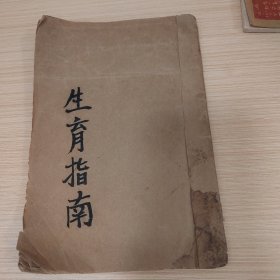 生育指南